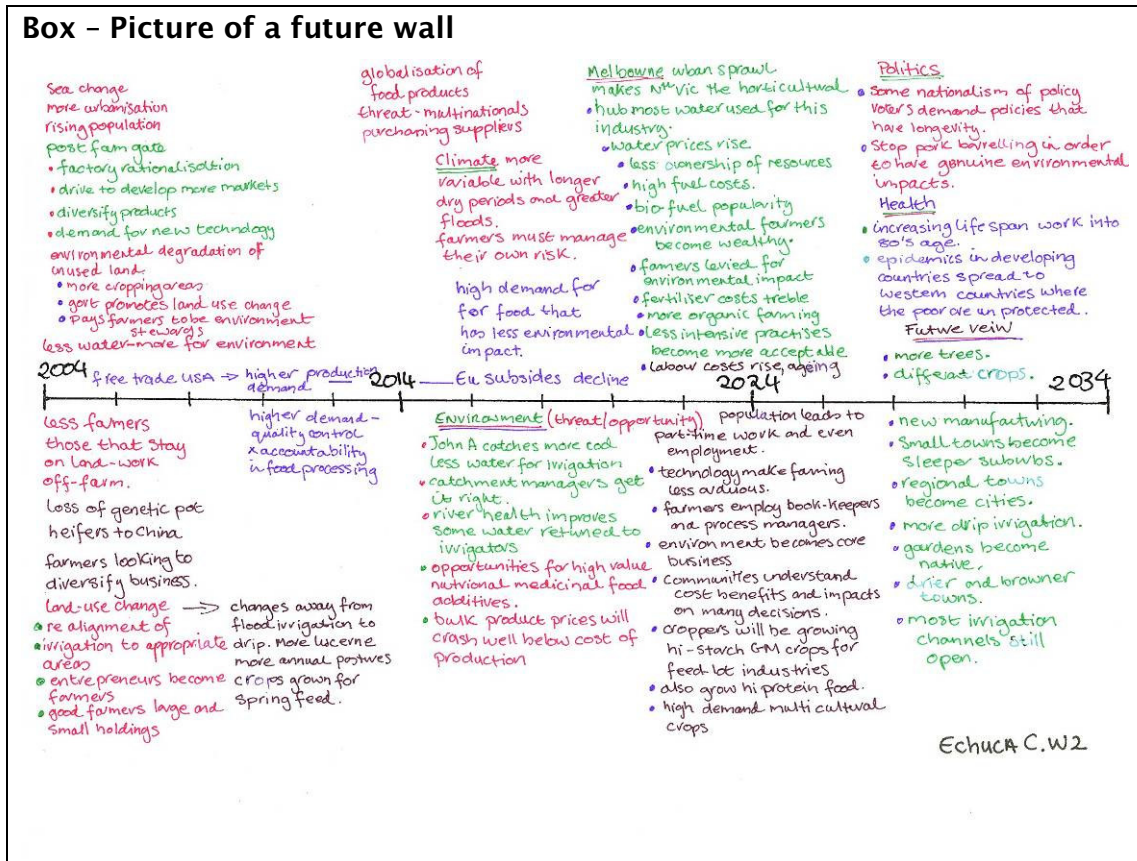 Box – Picture of a future wall
Sea change
more urbanisation
rising population
post farm gate
• factory rationalisation
• drive to develop more markets
• diversify products
• demand for new technology
environmental degradation of
unused land.
• more cropping areas
• govt promotes land use change
• Pays farmers to be environment
stewards
less water-more for environment
globalisation of
food products
threat-multinationals
purchasing suppliers
Climate more
variable with longer
dry periods and greater
floods.
farmers must manage
their own risk.
high demand for
for food that
has less environmental
impact.
Melbourne urban sprawl
makes Nth Vic the horticultural
• hub most water used for this
industry.
• water prices rise
• less ownership of resources
• high fuel costs.
• bio-fuel popularity
• environmental farmers
become wealthy.
• farmers levied for
environmental impact
• fertiliser costs treble
• more organic farming
• Less intensive practises
become more acceptable
• Labour costs rise, ageing
Politics
• Some nationalism of policy
voters demand policies that
have longevity.
• Stop pork barrelling in order
to have genuine environmental
impacts.
Health
• increasing life span work into
80's age.
• epidemics in developing
countries spread to
western countries where
the poor are un protected.
Future vein
• more trees.
• different crops.
2004 free trade USA → higher production
demand
2014 — Eu subsides decline
2024
2034
less farmers
those that stay
on land-work
off-farm.
loss of genetic pool
heifers to China
farmers looking to
diversify business.
land-use change →
• re alignment of
• irrigation to appropriate
areas
• entrepreneurs become
farmers
• good farmers large and
small holdings
higher demand-
quality control
x accountability
in food processing
changes away from
flood irrigation to
drip. More lucerne
more annual pastures
crops grown for
Spring feed.
Environment (threat/opportunity)
• John A catches more cod
less water for irrigation
• catchment managers get
it right.
• river health improves
some water returned to
irrigators
• opportunities for high value
nutrional medicinal food
additives.
• bulk product prices will
crash well below cost of
production
population leads to
part-time work and even
employment.
• technology make farming
less arduous.
• farmers employ book-keepers
and process managers.
• environment becomes core
business
• Communities understand
cost benefits and impacts
on many decisions.
• croppers will be growing
hi-starch GM crops for
feed-lot industries
• also grow hi protein food.
• high demand multi cultural
crops
• new manufacturing.
• Small towns become
sleeper suburbs.
• regional towns
become cities.
• more drip irrigation.
• gardens become
native.
• drier and browner
towns.
• most irrigation
channels still
open.
Echuca C.W2